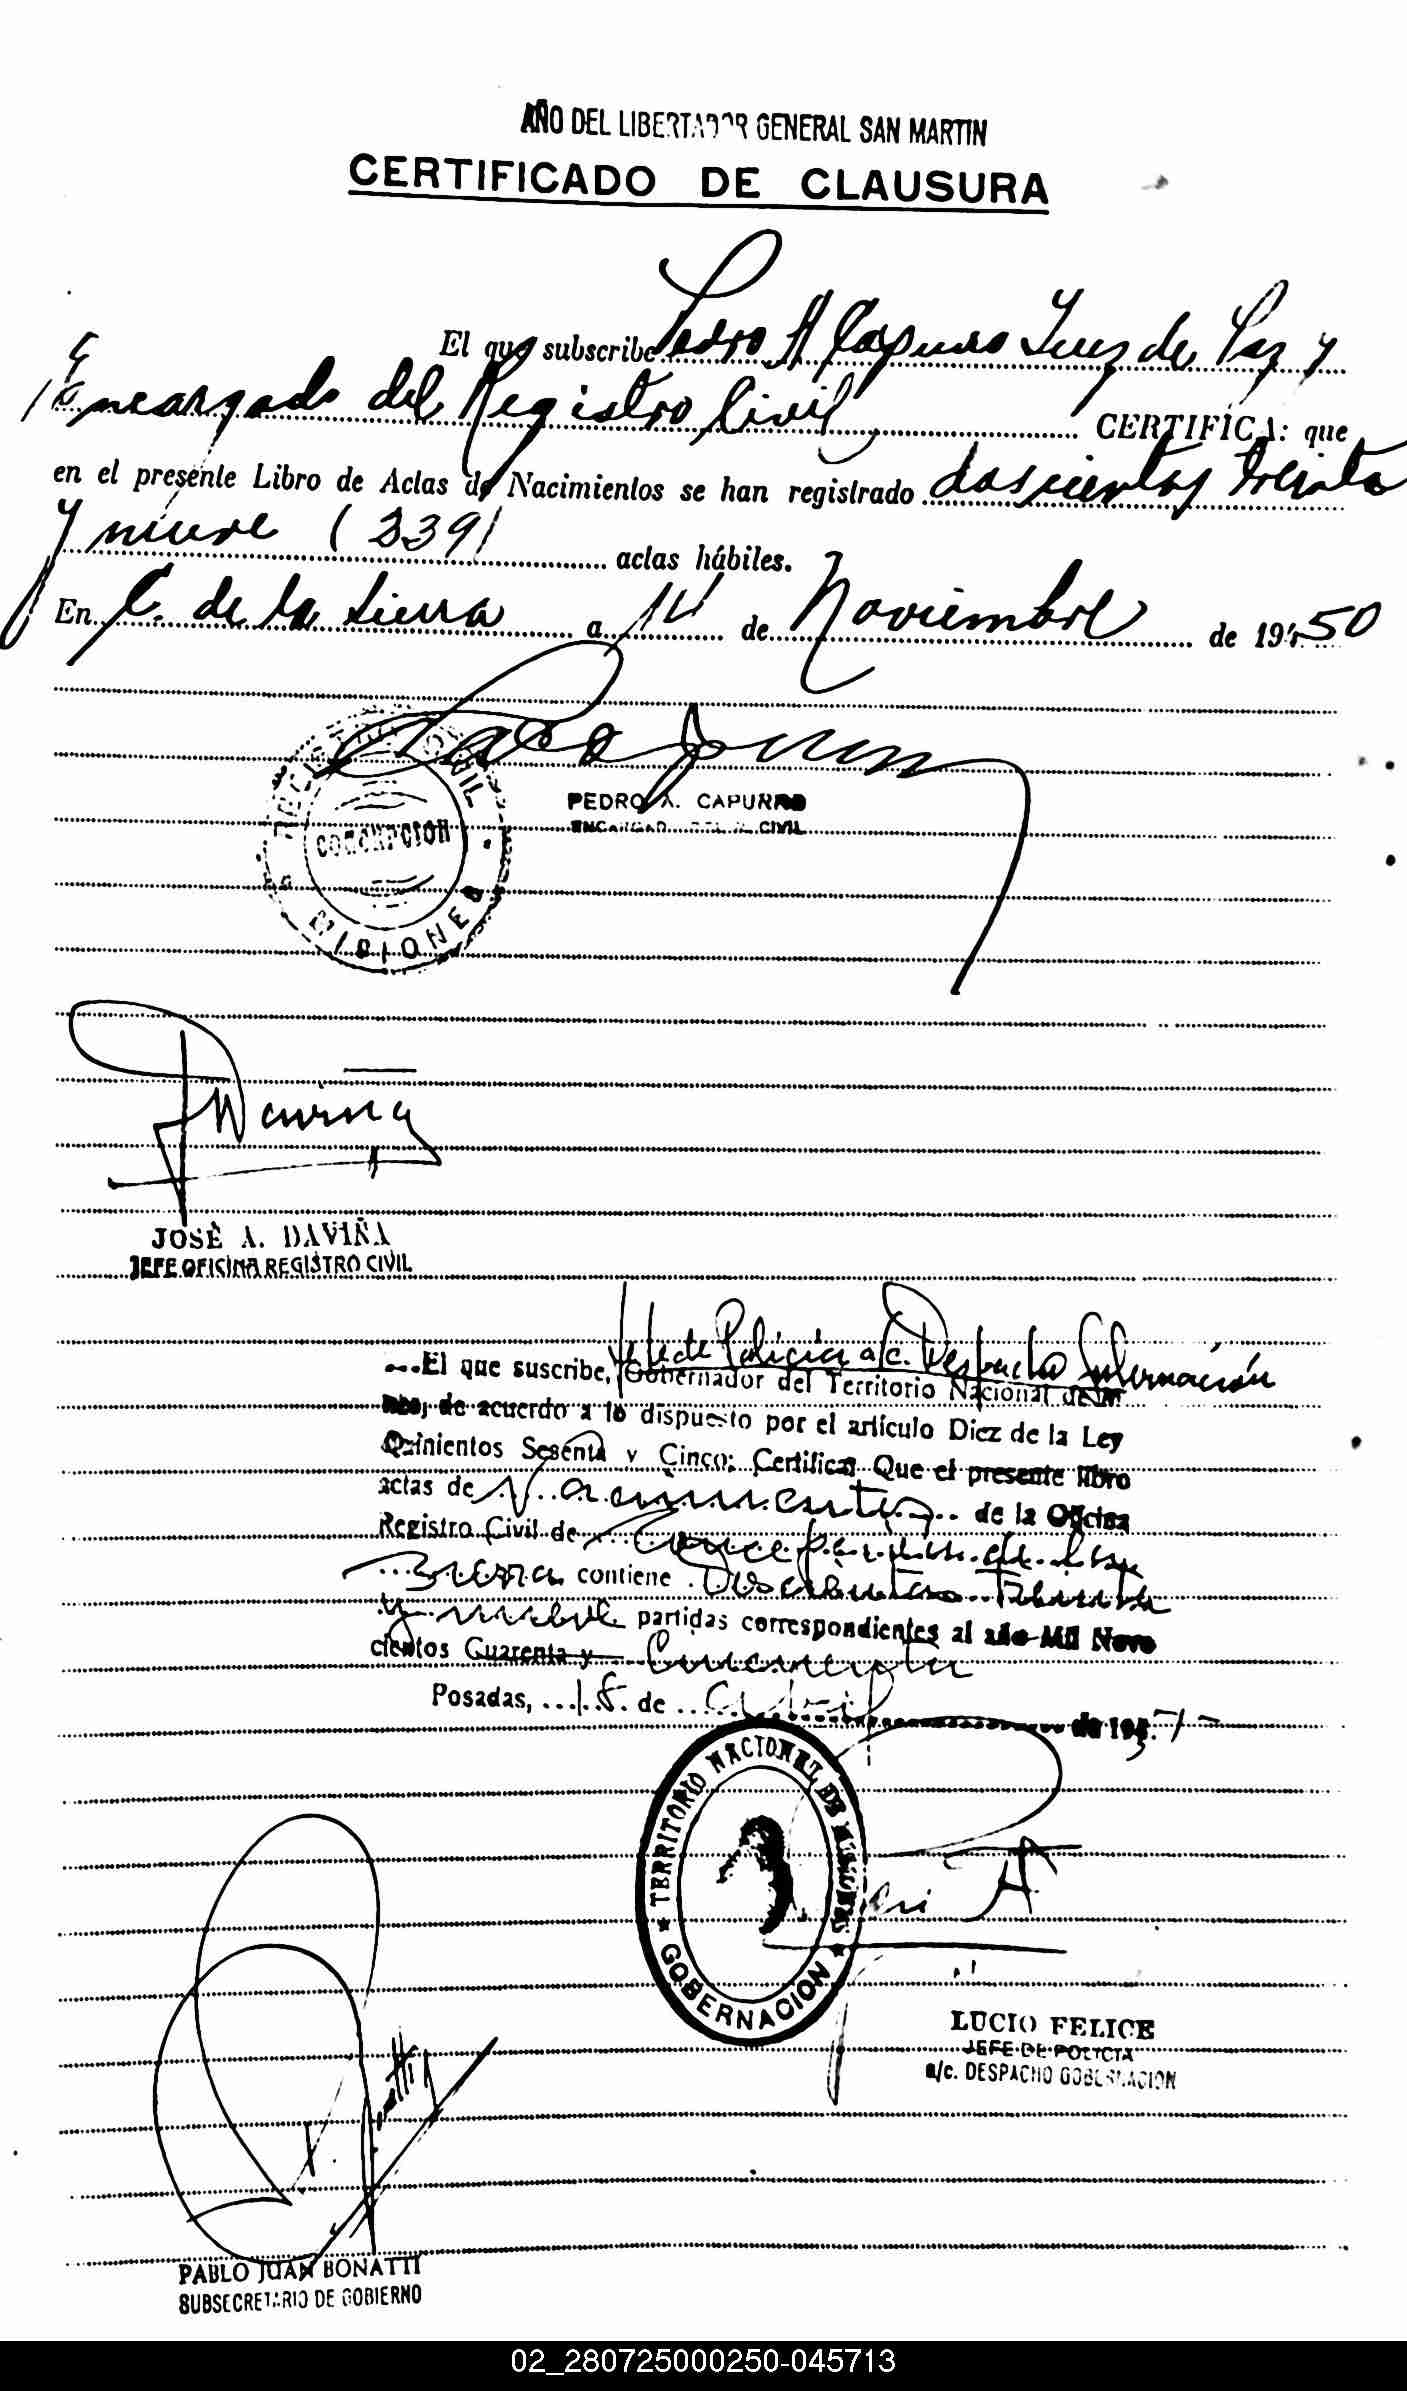 AÑO DEL LIBERTADOR GENERAL SAN MARTIN
CERTIFICADO DE CLAUSURA
El que subscribe Pedro A Capurro Juez de Paz y
Encargado del Registro Civil CERTIFICA: que
en el presente Libro de Actas de Nacimientos se han registrado doscientos treinta
y nueve (239) actas hábiles.
En C. de la Sierra a 14 de Noviembre de 1950
REGISTRO CIVIL
CONCEPCION
MISIONES
PEDRO A. CAPURRO
ENCARGADO DEL R. CIVIL
JOSÉ A. DAVIÑA
JEFE OFICINA REGISTRO CIVIL
Jefe de Policía a/c. Despacho Gobernación
El que suscribe, Gobernador del Territorio Nacional de
de acuerdo a lo dispuesto por el artículo Diez de la Ley
Quinientos Sesenta y Cinco; Certifica: Que el presente libro
actas de Nacimientos de la Oficina
Registro Civil de Concepción de la
Sierra contiene Doscientos Treinta
y nueve partidas correspondientes al año Mil Nove
cientos Cuarenta y Cincuenta
Posadas, 18 de abril de 1951-
TERRITORIO NACIONAL DE MISIONES
GOBERNACION
LUCIO FELICE
JEFE DE POLICIA
a/c. DESPACHO GOBERNACION
PABLO JUAN BONATTI
SUBSECRETARIO DE GOBIERNO
02_280725000250-045713